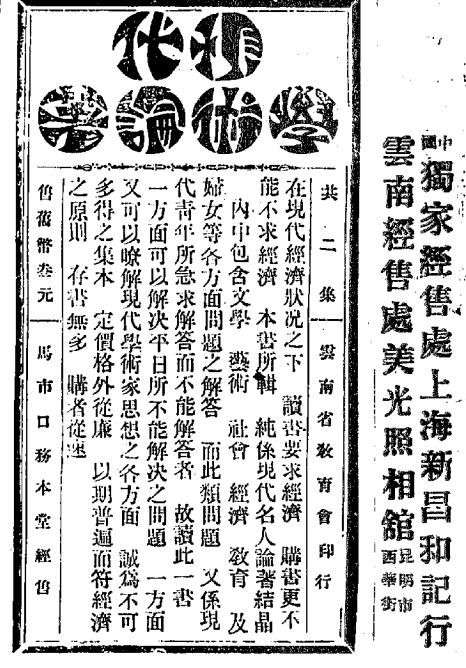 中國獨家經售處上海新昌和記行
雲南經售處美光照相舘昆明市西華街
現代
學術論叢
共二集 雲南省教育會印行
在現代經濟狀况之下 讀書要求經濟 購書更不
能不求經濟 本書所輯 純係現代名人論著結晶
內中包含文學 藝術 社會 經濟 教育 及
婦女等各方面問題之解答 而此類問題 又係現
代青年所急求解答而不能解答者 故讀此一書
一方面可以解决平日所不能解决之問題 一方面
又可以暸解現代學術家思想之各方面 誠爲不可
多得之集本 定價格外從廉 以期普遍而符經濟
之原則 存書無多 購者從速
售舊幣叁元 馬市口務本堂經售